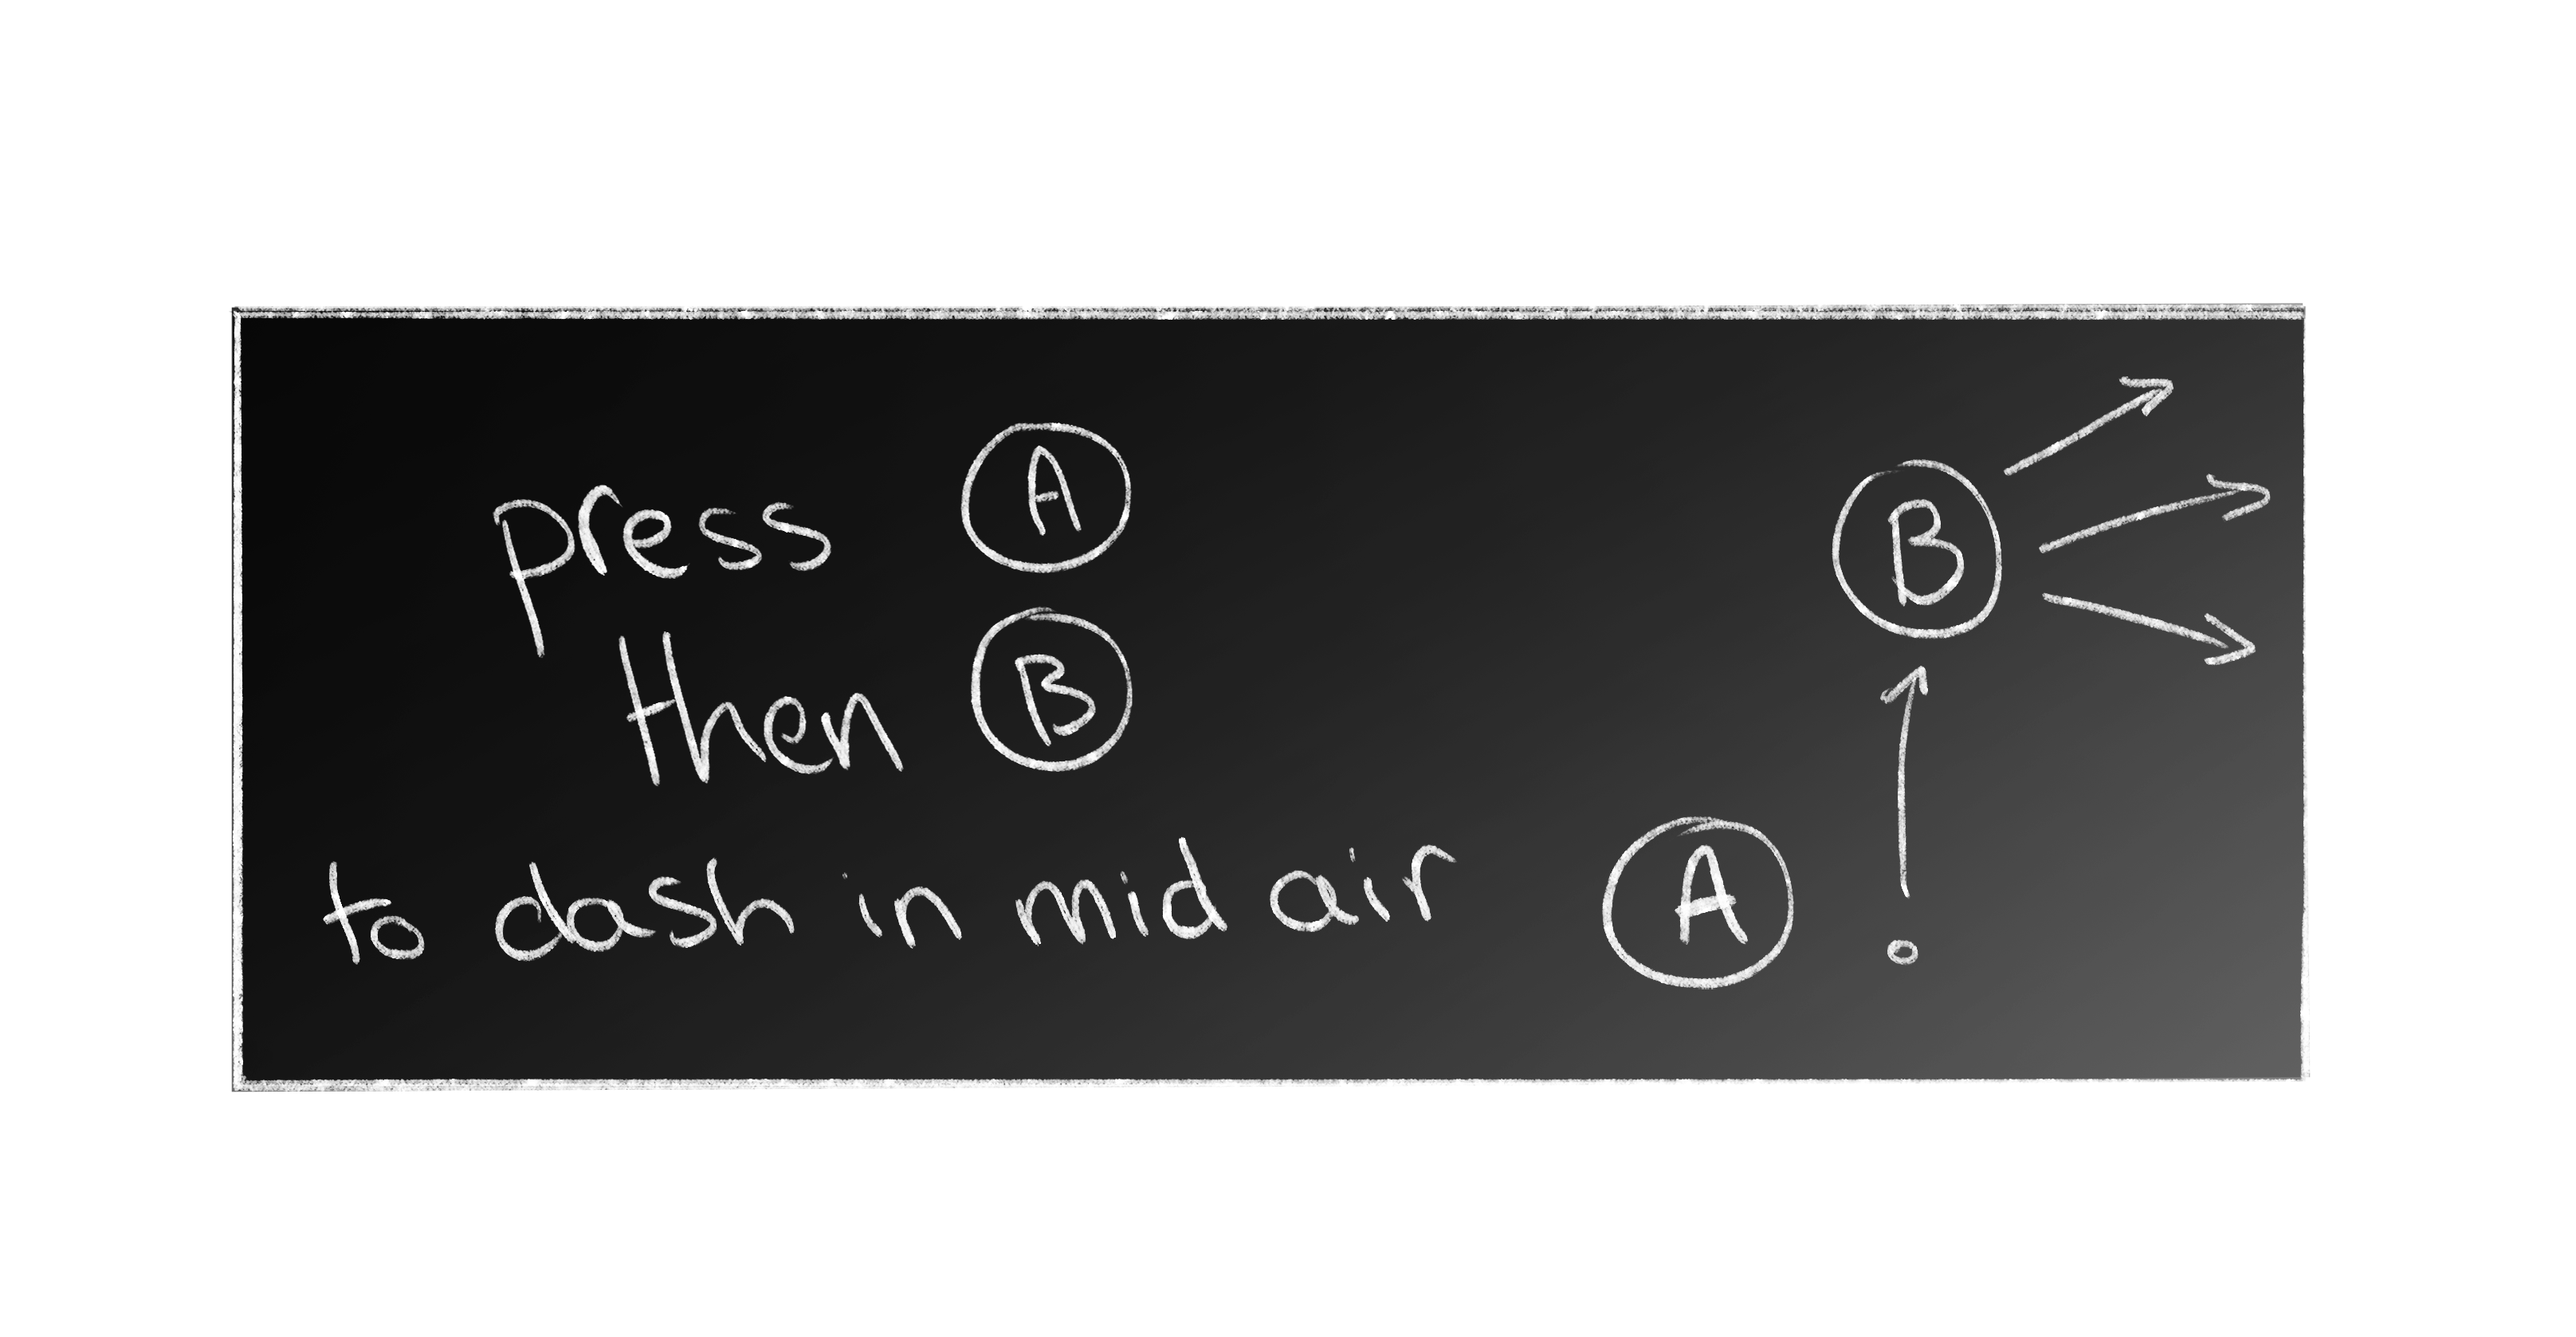 press A
then B
to dash in mid air
B
A